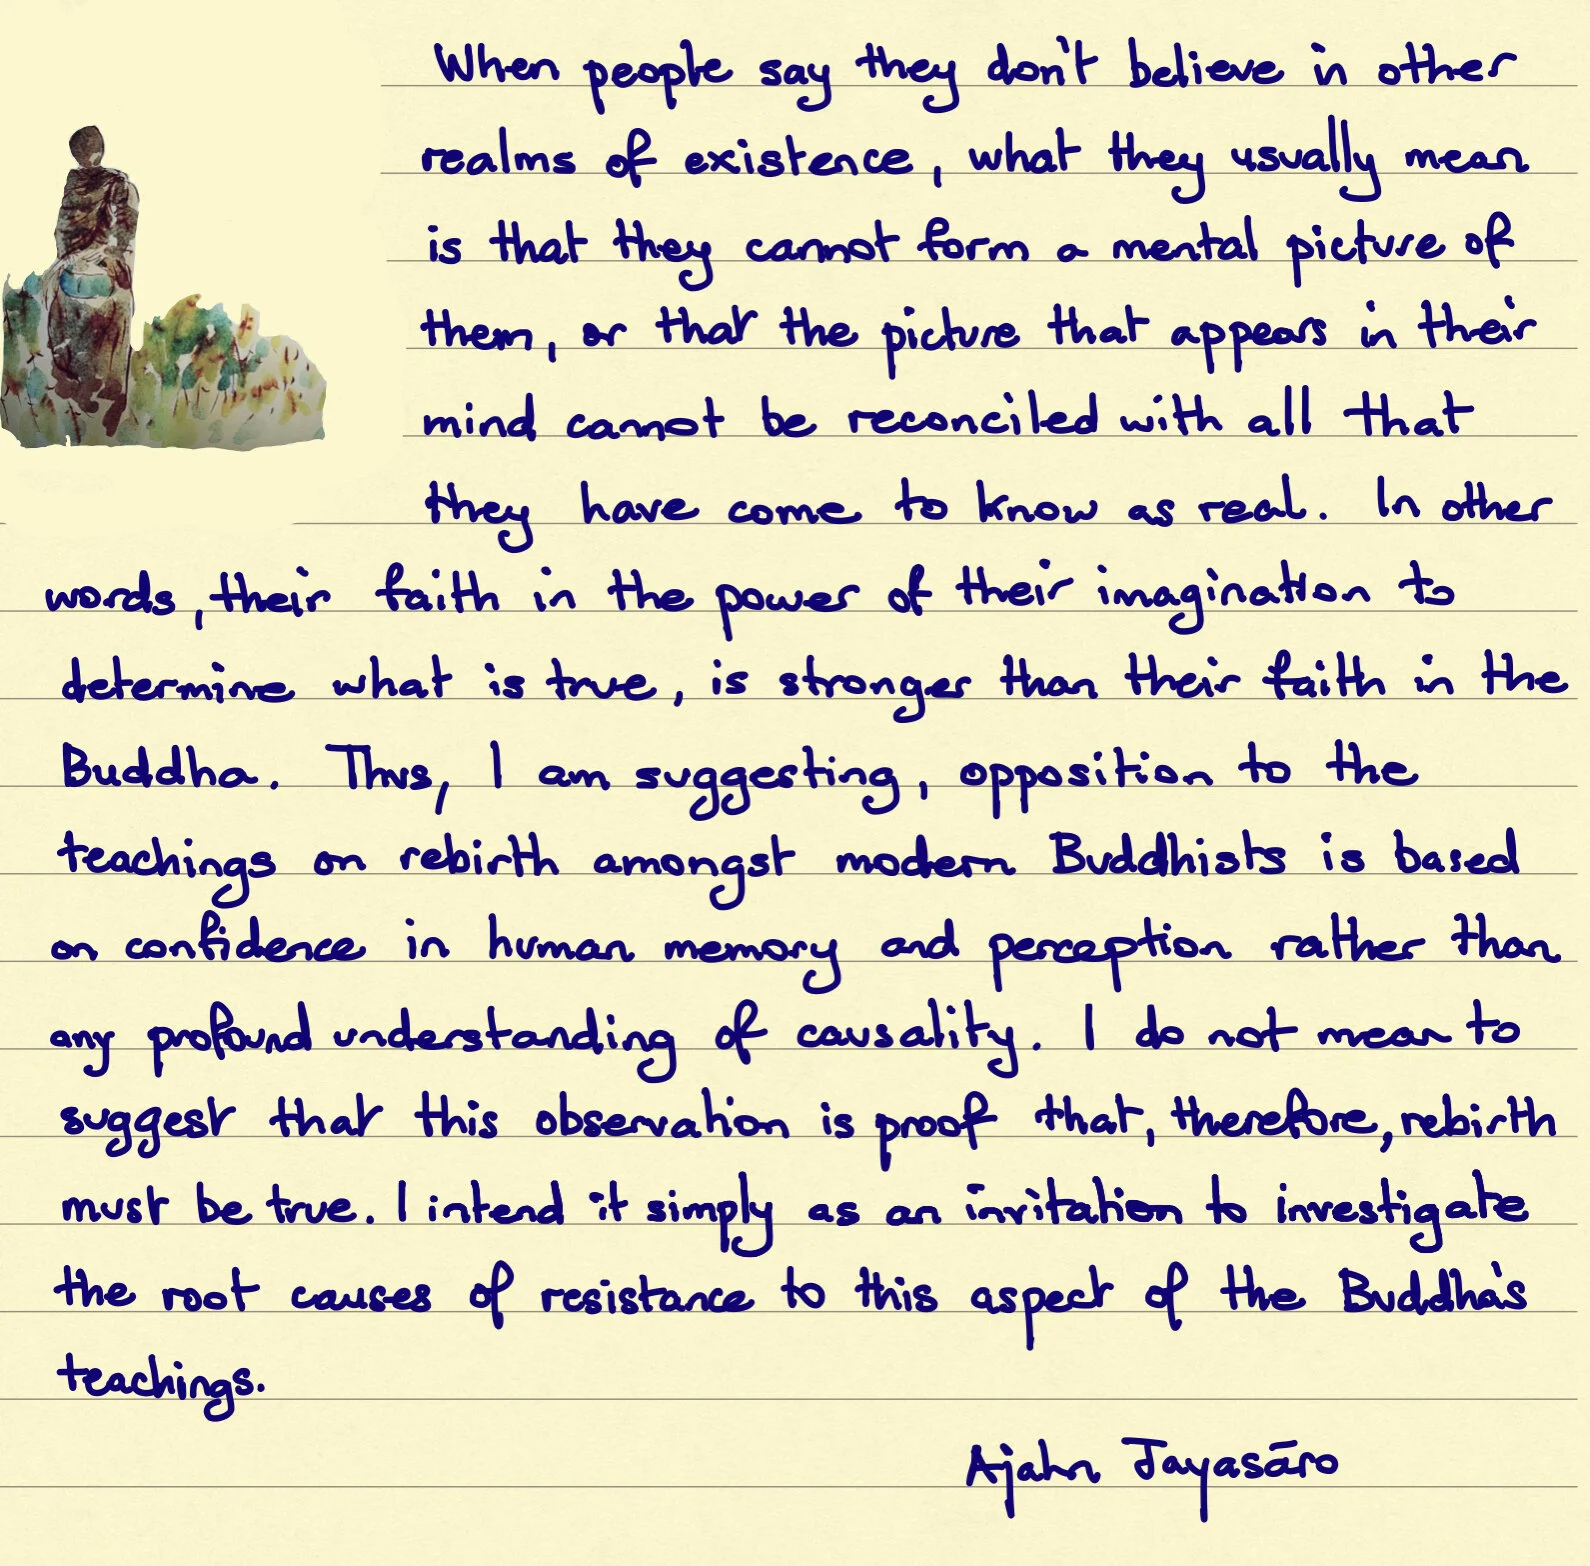 When people say they don't believe in other
realms of existence, what they usually mean
is that they cannot form a mental picture of
them, or that the picture that appears in their
mind cannot be reconciled with all that
they have come to know as real. In other
words, their faith in the power of their imagination to
determine what is true, is stronger than their faith in the
Buddha. Thus, I am suggesting, opposition to the
teachings on rebirth amongst modern Buddhists is based
on confidence in human memory and perception rather than
any profound understanding of causality. I do not mean to
suggest that this observation is proof that, therefore, rebirth
must be true. I intend it simply as an invitation to investigate
the root causes of resistance to this aspect of the Buddha's
teachings.
Ajahn Jayasāro